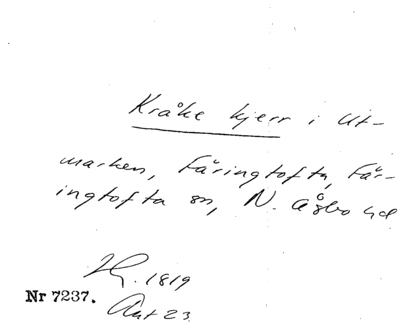 Kråke kjerr i Ut-
marken, Färingtofta, Fär-
ingtofta sn, N. Åsbo hd
1819
Nr 7237. Akt 23